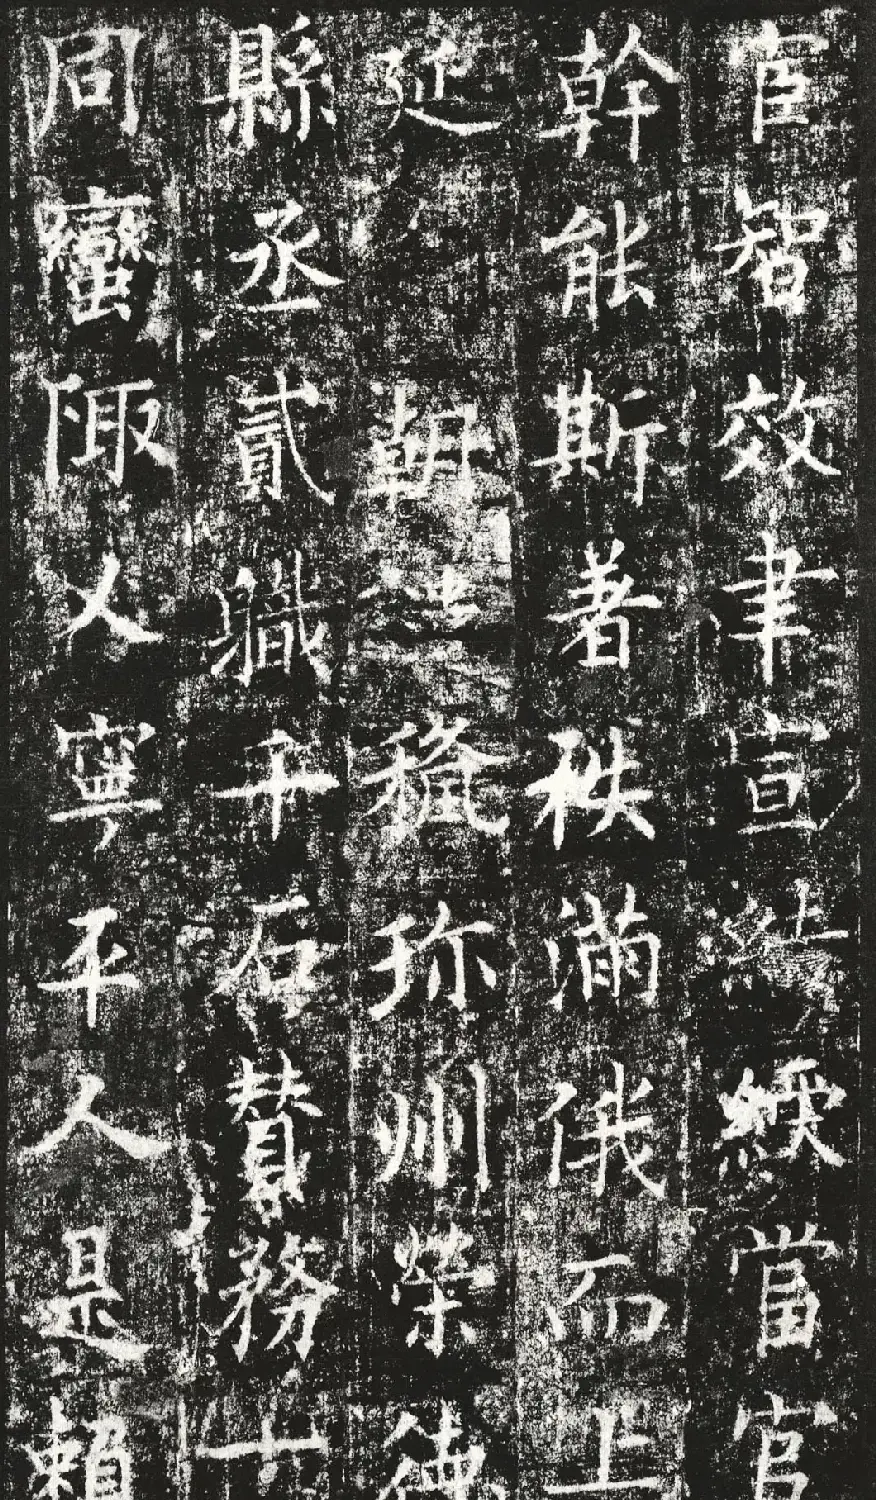 宦智效聿宣結綬當官
幹能斯著秩滿俄而上
延朝珎州榮德
縣丞貳軄千石賛務十
同蠻陬乂寧平人是賴